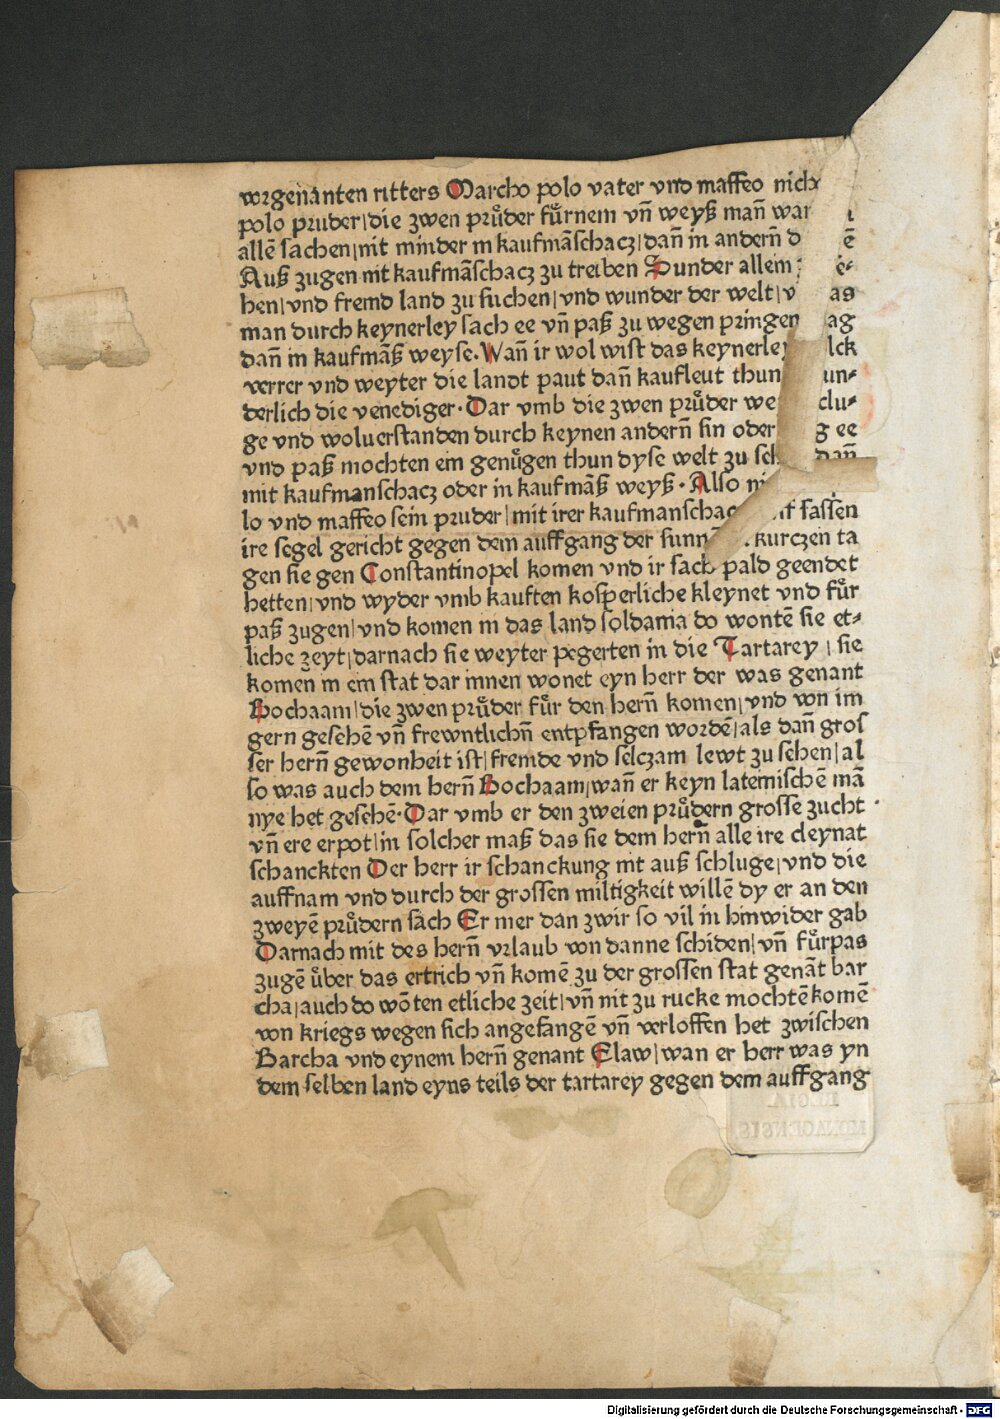 vorgenanten ritters Marcho polo vater vnd maffeo nich
polo pruder|die zwen pruͤder fuͤrnem vn̄ weyß man̄ war
allē sachen|nit minder in kaufmāschacz|dan̄ in andern̄ d ē
Auß zugen nit kaufmāschacz zu treiben Sunder allein
hen|vnd fremd land zu suchen|vnd wunder der welt|v as
man durch keynerley sach ee vn̄ paß zu wegen pringen ag
dan̄ in kaufmāß weyse·Wan̄ ir wol wist das keynerley lck
verrer vnd weyter die landt paut dan̄ kaufleut thun un⸗
derlich die venediger·Dar vmb die zwen pruͤder we clu⸗
ge vnd woluerstanden durch keynen andern̄ sin oder g ee
vnd paß mochten ein genuͤgen thun dyse welt zu sch dan̄
mit kaufmanschacz oder in kaufmāß weyß·Also ni
lo vnd maffeo sein pruder|mit irer kaufmanschac sassen
ire segel gericht gegen dem auffgang der sunn kurczen ta
gen sie gen Constantinopel komen vnd ir sach pald geendet
hetten|vnd wyder vmb kauften kosperliche kleynet vnd fuͤr
paß zugen|vnd komen in das land soldania do wontē sie et⸗
liche zeyt|darnach sie weyter pegerten in die Tartarey|sie
komen̄ in ein stat dar innen wonet eyn herr der was genant
Hochaam|die zwen pruͤder fuͤr den hern̄ komen|vnd von im
gern gesehē vn̄ frewntlichn̄ entpfangen wordē|als dan̄ gros
ser hern̄ gewonheit ist|fremde vnd selczam lewt zu sehen|al
so was auch dem hern̄ Hochaam|wan̄ er keyn lateinischē mā
nye het gesehē·Dar vmb er den zweien pruͤdern grosse zucht
vn̄ ere erpot|in solcher maß das sie dem hern̄ alle ire cleynat
schanckten Der herr ir schanckung nit auß schluge|vnd die
auffnam vnd durch der grossen miltigkeit willē dy er an den
zweyē pruͤdern sach Er mer dan zwir so vil in hinwider gab
Darnach mit des hern̄ vrlaub von danne schiden|vn̄ fuͤrpas
zugē uͤber das ertrich vn̄ komē zu der grossen stat genāt bar
cha|auch do wōten etliche zeit|vn̄ nit zu rucke mochtē komē
von kriegs wegen sich angefangē vn̄ verloffen het zwischen
Barcha vnd eynem hern̄ genant Elaw|wan er herr was yn
dem selben land eyns teils der tartarey gegen dem auffgang
Digitalisierung gefördert durch die Deutsche Forschungsgemeinschaft - DFG